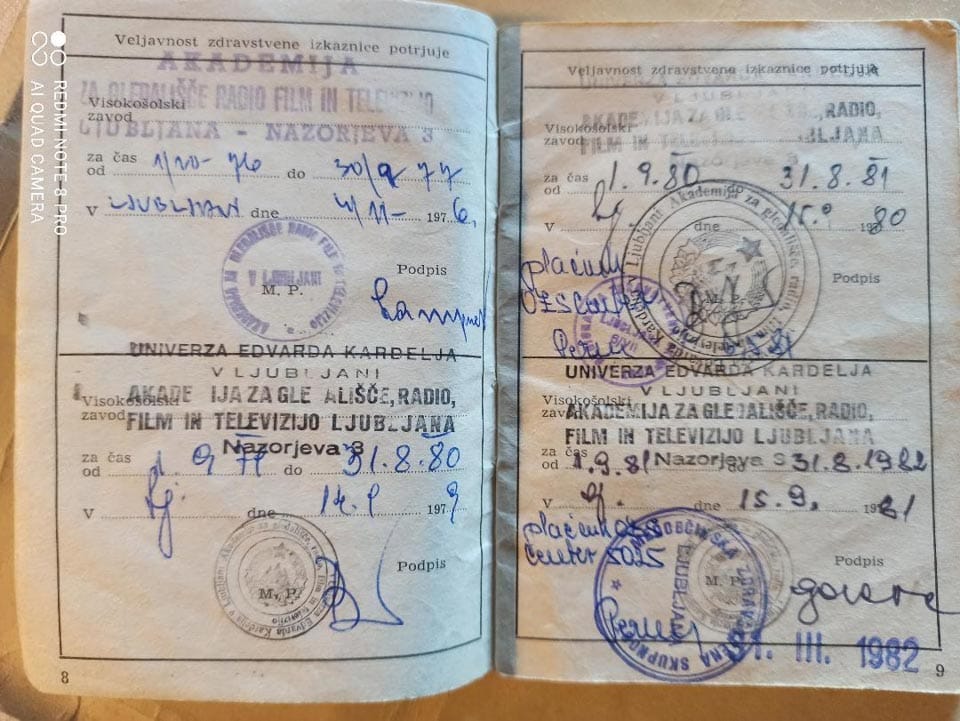 REDMI NOTE 8 PRO
AI QUAD CAMERA
Veljavnost zdravstvene izkaznice potrjuje
AKADEMIJA
ZA GLEDALIŠČE RADIO FILM IN TELEVIZIJO
Visokošolski
zavod
LJUBLJANA - NAZORJEVA 3
za čas
od 1/10-76 do 30/9 77
V LJUBLJANI dne 4/11- 197 6.
AKADEMIJA ZA GLEDALIŠČE RADIO FILM IN TELEVIZIJO
V LJUBLJANI
Podpis
M. P.
UNIVERZA EDVARDA KARDELJA
V LJUBLJANI
Visokošolski
AKADE IJA ZA GLE ALIŠČE, RADIO,
zavod
FILM IN TELEVIZIJO LJUBLJANA
Nazorjeva 3
za čas
od 1. 9 do 31. 8. 80
V Lj. dne 197 9
Podpis
M. P.
8
Veljavnost zdravstvene izkaznice potrjuje
V LJUBLJANI
AKADEMIJA ZA GLE RADIO,
Visokošolski
zavod
FILM IN TELEVIZIJO LJUBLJANA
za čas
od 1. 9. 80 do 31. 8. 81
V Lj. dne 15. 9 80
Podpis
M. P.
UNIVERZA EDVARDA KARDELJA
V LJUBLJANI
Visokošolski
AKADEMIJA ZA GLEDALIŠČE, RADIO,
zavod
FILM IN TELEVIZIJO LJUBLJANA
za čas
od 1. 9. 81 Nazorjeva 3 31. 8. 1982
V Lj. dne 15. 9. 81
center 5025
LJUBLJANA
Podpis
M. P.
31. III. 1982
9